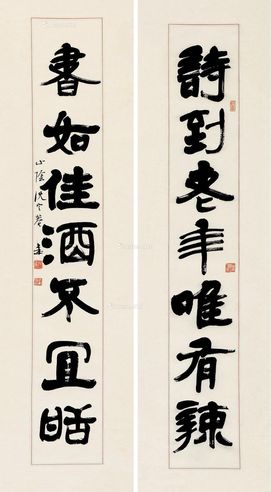 詩到老年唯有辣
書如佳酒不宜甜
山陰沈定庵書